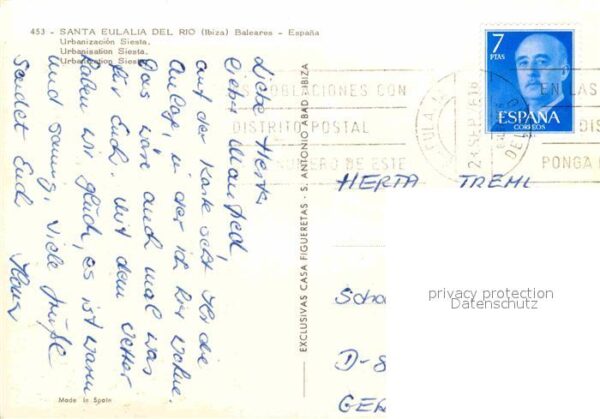 453 - SANTA EULALIA DEL RIO (Ibiza) Baleares - España
Urbanización Siesta.
Urbanisation Siesta.
Urbanization Siesta.
Liebe Herta,
lieber Manfred,
auf der Karte seht Ihr die
Anlage, in der ich hier wohne.
Das wäre auch mal was
für Euch. Mit dem Wetter
haben wir Glück, es ist warm
und sonnig. Viele Grüße
sendet Euch
Made in Spain
EXCLUSIVAS CASA FIGUERETAS - S. ANTONIO ABAD - IBIZA
7
PTAS
ESPAÑA
CORREOS
POBLACIONES CON
DISTRITO POSTAL
NUMERO DE ESTE
EN LAS
DIS
PONGA
HERTA TREML
D-8
privacy protection
Datenschutz